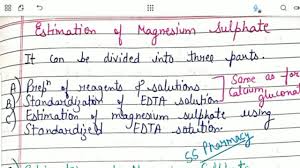 Estimation of Magnesium Sulphate
It can be divided into three parts.
A) Prepⁿ of reagents & solutions
B) Standardization of EDTA solution
Same as for
Calcium
gluconate
C) Estimation of magnesium sulphate using
Standardized EDTA solution.
SS Pharmacy